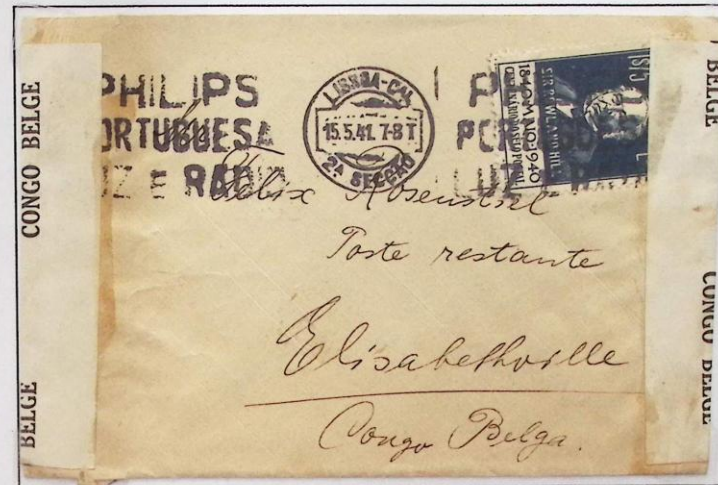 CONGO BELGE
BELGE
PHILIPS
ORTUGUESA
UZ E RADIO
LISBOA-C
15.5.41. 7-8 T
2ª SECÇÃO
P
POR
LUZ E R
SIR ROWLAND HILL
1840-MAIO-1940
1$75
Felix Rosenstiel
Poste restante
Elisabethville
Congo Belga.
BELGE
CONGO BELGE